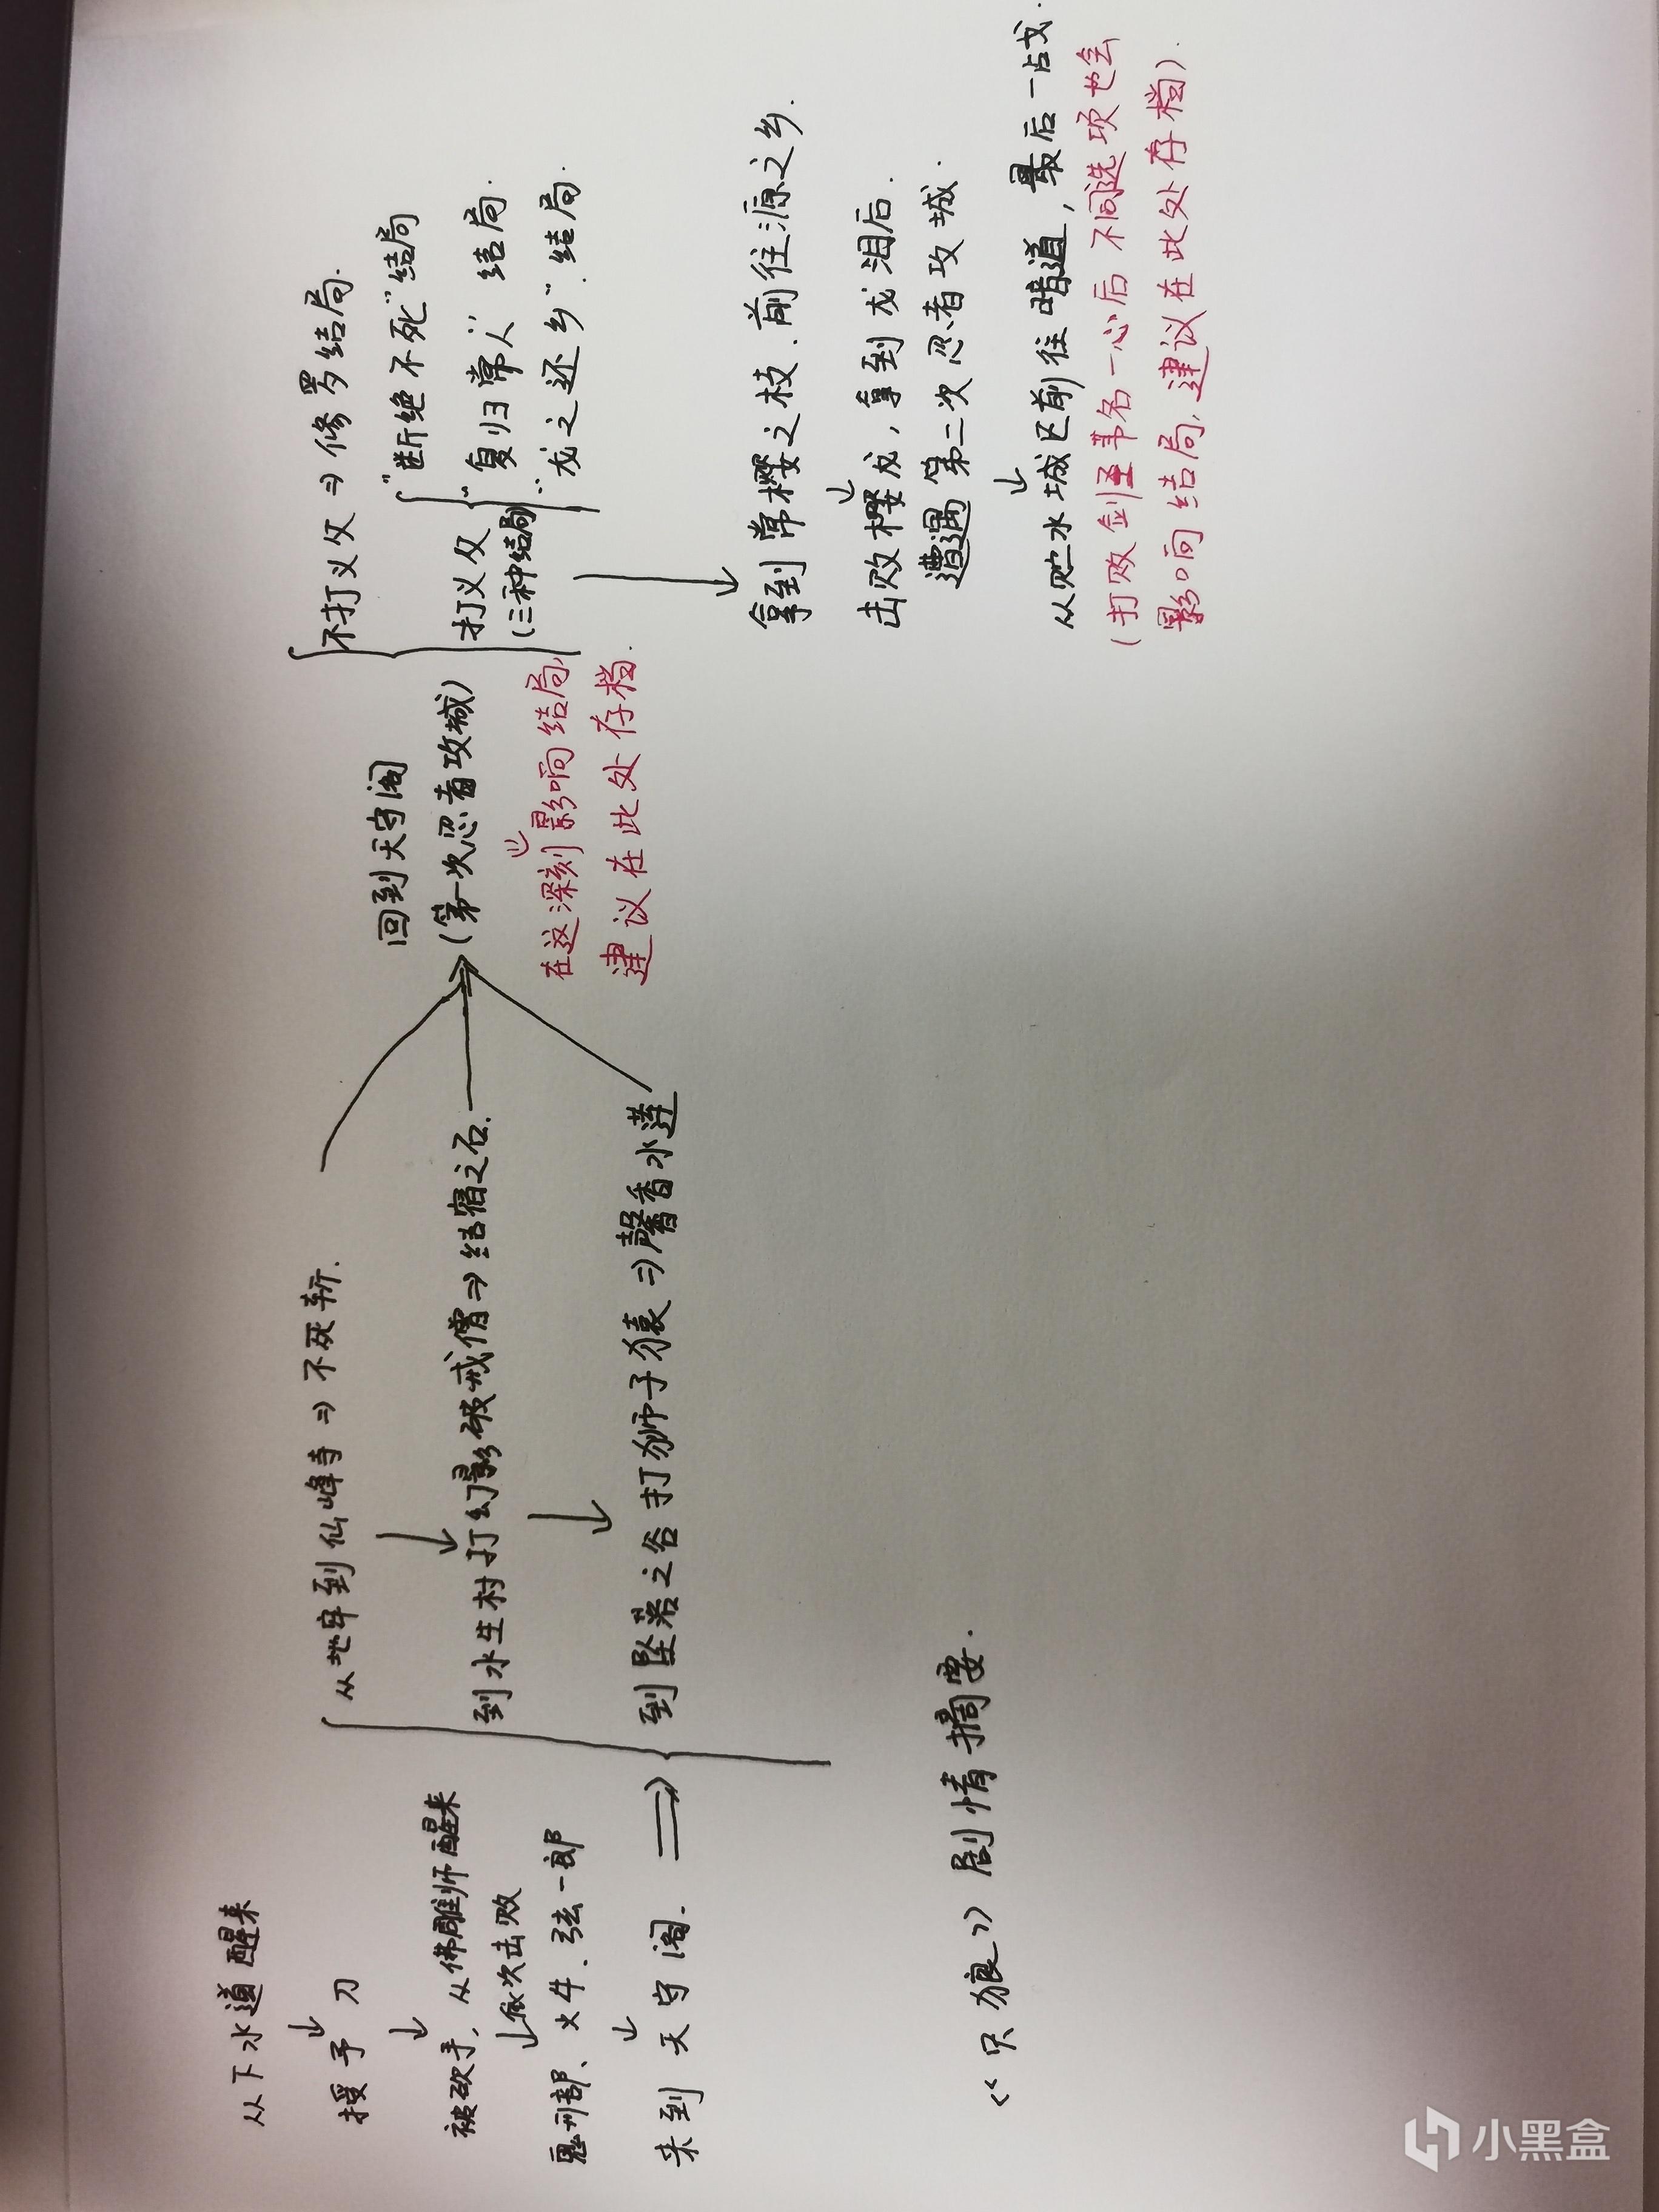 从下水道醒来
↓
授予刀
↓
被砍手，从佛雕师醒来
↓依次击败
鬼刑部、火牛、弦一郎
↓
来到天守阁. ⇒
从地牢到仙峰寺⇒不死斩.
↓
到水生村打幻影破戒僧⇒结宿之石.
↓
到坠落之谷打狮子猿⇒馨香水莲
回到天守阁
(第一次忍者攻城)
↓
在这深刻影响结局，
建议在此处存档.
不打义父⇒修罗结局.
打义父
(三种结局)
"断绝不死"结局
"复归常人"结局.
"龙之还乡".结局.
↓
拿到常樱之枝、前往源之乡.
↓
击败樱龙，拿到龙泪后.
遭遇第二次忍者攻城.
↓
从贮水城区前往暗道，最后一战.
(打败剑圣苇名一心后不同选项也会
影响结局，建议在此处存档).
《只狼》剧情摘要.
小黑盒